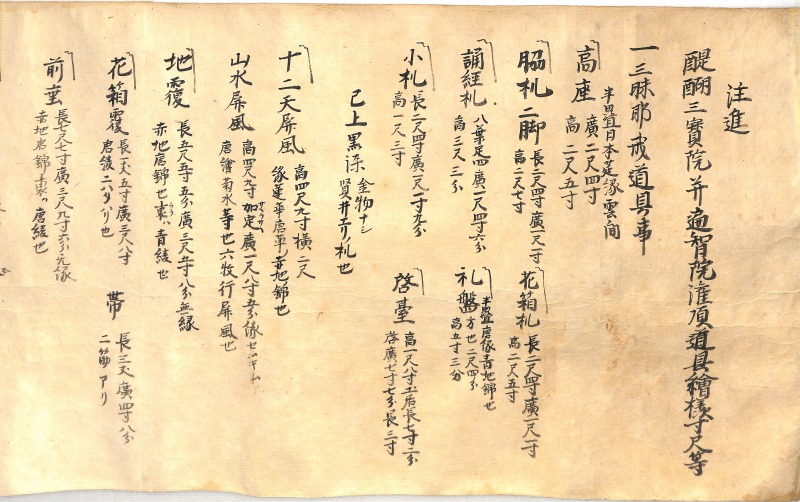 注進
醍醐三寶院并遍智院灌頂道具繪様寸尺等
一三昧耶戒道具事
高座 半畳日本是縁雲間 廣二尺四寸 高二尺五寸
脇札二脚 長二尺四寸廣一尺一寸 高二尺七寸
花箱札 長二尺四寸廣一尺一寸 高二尺五寸
誦經札 八葉足四廣一尺四寸六分 高三尺三分
礼盤 半畳唐縁青地錦也 方也二尺四分 高五寸三分
小札 長二尺四寸廣一尺一寸九分 高一尺三寸
啓臺 高一尺八寸土居長七寸二分 啓廣七寸七分長三寸
已上黒漆 金物ナシ 賢井エリ札也
十二天屏風 高四尺九寸横二尺 縁蓮華唐草赤地錦也
山水屏風 高四尺九寸加定廣一尺八寸五分縁セ 唐繪菊水等也六枚行屏風也
地覆 長五尺五寸五分廣三尺五寸八分無縁 赤地唐錦也裏ハ青綾也
花箱覆 長一丈五寸廣三尺八寸 唐綾二タリ也
帯 長三丈廣四寸八分 二筋アリ
前垂 長七尺七寸廣三尺九寸六分元縁 赤地唐錦裏ハ唐綾也